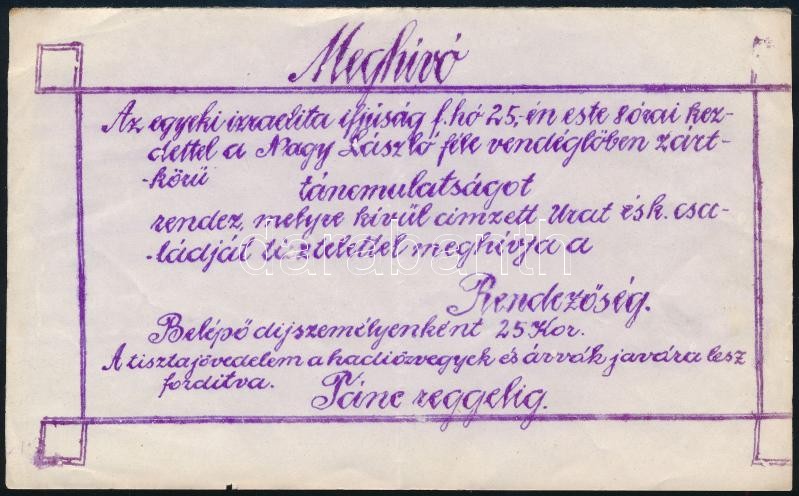 Meghívó
Az egyeki izraelita ifjúság f. hó 25.-én este 8 órai kez-
dettel a Nagy László féle vendéglőben zárt-
-körü táncmulatságot
rendez, melyre kívül cimzett Urat és k. csa-
-ládját tisztelettel meghívja a
darabanth
Rendezőség.
Belépő dij személyenként 25 Kor.
A tiszta jövedelem a hadiözvegyek és árvák javára lesz
forditva.
Tánc reggelig.